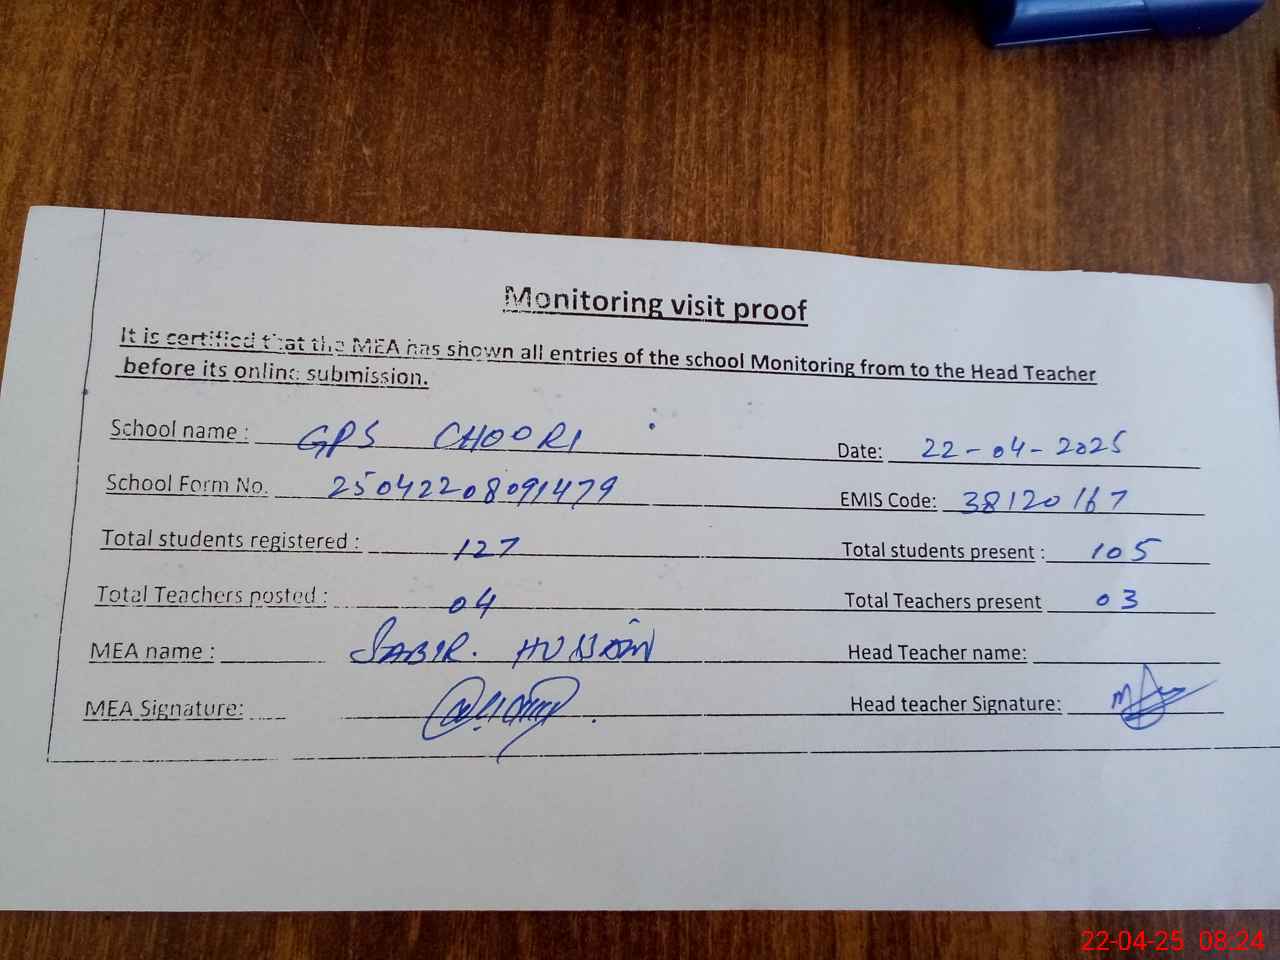 Monitoring visit proof
It is certified that the MEA has shown all entries of the school Monitoring from to the Head Teacher
before its online submission.
School name : GPS CHOORI Date: 22-04-2025
School Form No. 25042208091479 EMIS Code: 38120167
Total students registered : 127 Total students present : 105
Total Teachers posted : 04 Total Teachers present 03
MEA name : SABIR. HUSSAIN Head Teacher name:
MEA Signature: Head teacher Signature:
22-04-25 08:24